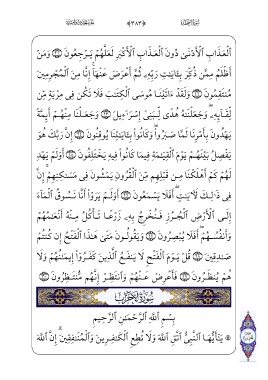 ٱلْعَذَابِ ٱلْأَدْنَىٰ دُونَ ٱلْعَذَابِ ٱلْأَكْبَرِ لَعَلَّهُمْ يَرْجِعُونَ ۝ وَمَنْ
أَظْلَمُ مِمَّن ذُكِّرَ بِـَٔايَـٰتِ رَبِّهِۦ ثُمَّ أَعْرَضَ عَنْهَآ إِنَّا مِنَ ٱلْمُجْرِمِينَ
مُنتَقِمُونَ ۝ وَلَقَدْ ءَاتَيْنَا مُوسَى ٱلْكِتَـٰبَ فَلَا تَكُن فِى مِرْيَةٍ مِّن
لِّقَآئِهِۦ وَجَعَلْنَـٰهُ هُدًى لِّبَنِىٓ إِسْرَٰٓءِيلَ ۝ وَجَعَلْنَا مِنْهُمْ أَئِمَّةً
يَهْدُونَ بِأَمْرِنَا لَمَّا صَبَرُوا۟ وَكَانُوا۟ بِـَٔايَـٰتِنَا يُوقِنُونَ ۝ إِنَّ رَبَّكَ هُوَ
يَفْصِلُ بَيْنَهُمْ يَوْمَ ٱلْقِيَـٰمَةِ فِيمَا كَانُوا۟ فِيهِ يَخْتَلِفُونَ ۝ أَوَلَمْ يَهْدِ
لَهُمْ كَمْ أَهْلَكْنَا مِن قَبْلِهِم مِّنَ ٱلْقُرُونِ يَمْشُونَ فِى مَسَـٰكِنِهِمْ إِنَّ
فِى ذَٰلِكَ لَـَٔايَـٰتٍ أَفَلَا يَسْمَعُونَ ۝ أَوَلَمْ يَرَوْا۟ أَنَّا نَسُوقُ ٱلْمَآءَ
إِلَى ٱلْأَرْضِ ٱلْجُرُزِ فَنُخْرِجُ بِهِۦ زَرْعًا تَأْكُلُ مِنْهُ أَنْعَـٰمُهُمْ
وَأَنفُسُهُمْ أَفَلَا يُبْصِرُونَ ۝ وَيَقُولُونَ مَتَىٰ هَـٰذَا ٱلْفَتْحُ إِن كُنتُمْ
صَـٰدِقِينَ ۝ قُلْ يَوْمَ ٱلْفَتْحِ لَا يَنفَعُ ٱلَّذِينَ كَفَرُوٓا۟ إِيمَـٰنُهُمْ وَلَا
هُمْ يُنظَرُونَ ۝ فَأَعْرِضْ عَنْهُمْ وَٱنتَظِرْ إِنَّهُم مُّنتَظِرُونَ ۝
سُورَةُ الْأَحْزَابِ
بِسْمِ ٱللَّهِ ٱلرَّحْمَـٰنِ ٱلرَّحِيمِ
يَـٰٓأَيُّهَا ٱلنَّبِىُّ ٱتَّقِ ٱللَّهَ وَلَا تُطِعِ ٱلْكَـٰفِرِينَ وَٱلْمُنَـٰفِقِينَ إِنَّ ٱللَّهَ